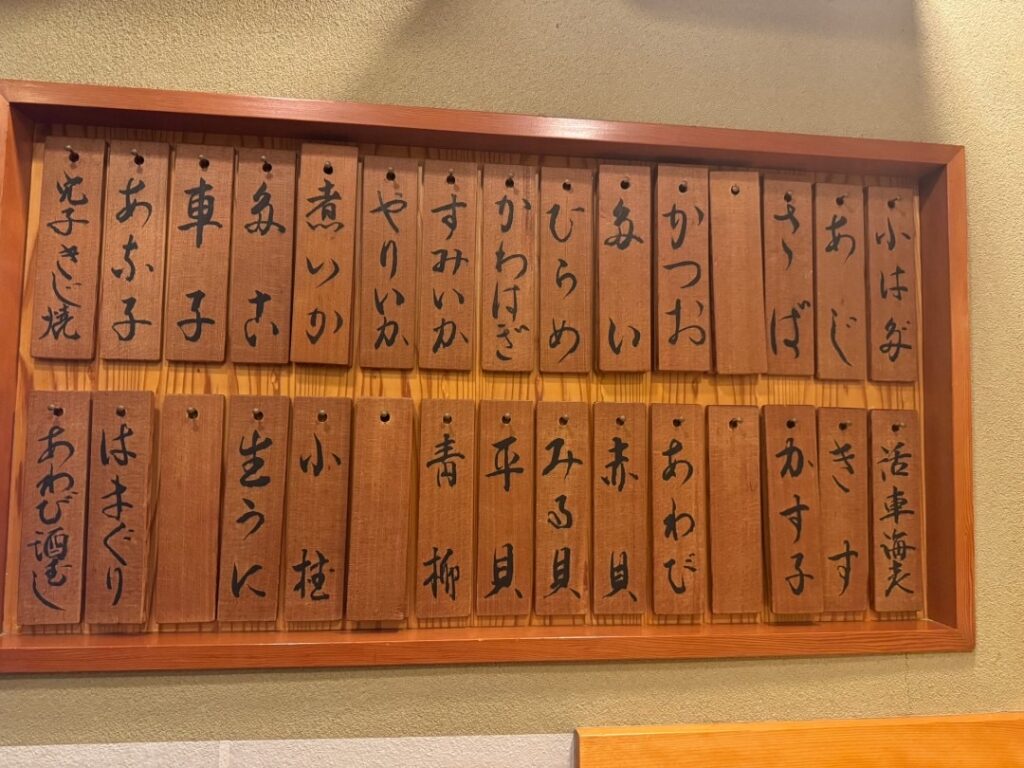 小はだ
あじ
さば
かつお
たい
ひらめ
かわはぎ
すみいか
やりいか
煮いか
たこ
車子
あな子
穴子きじ焼
活車海老
きす
かす子
あわび
赤貝
みる貝
平貝
青柳
小柱
生うに
はまぐり
あわび酒むし